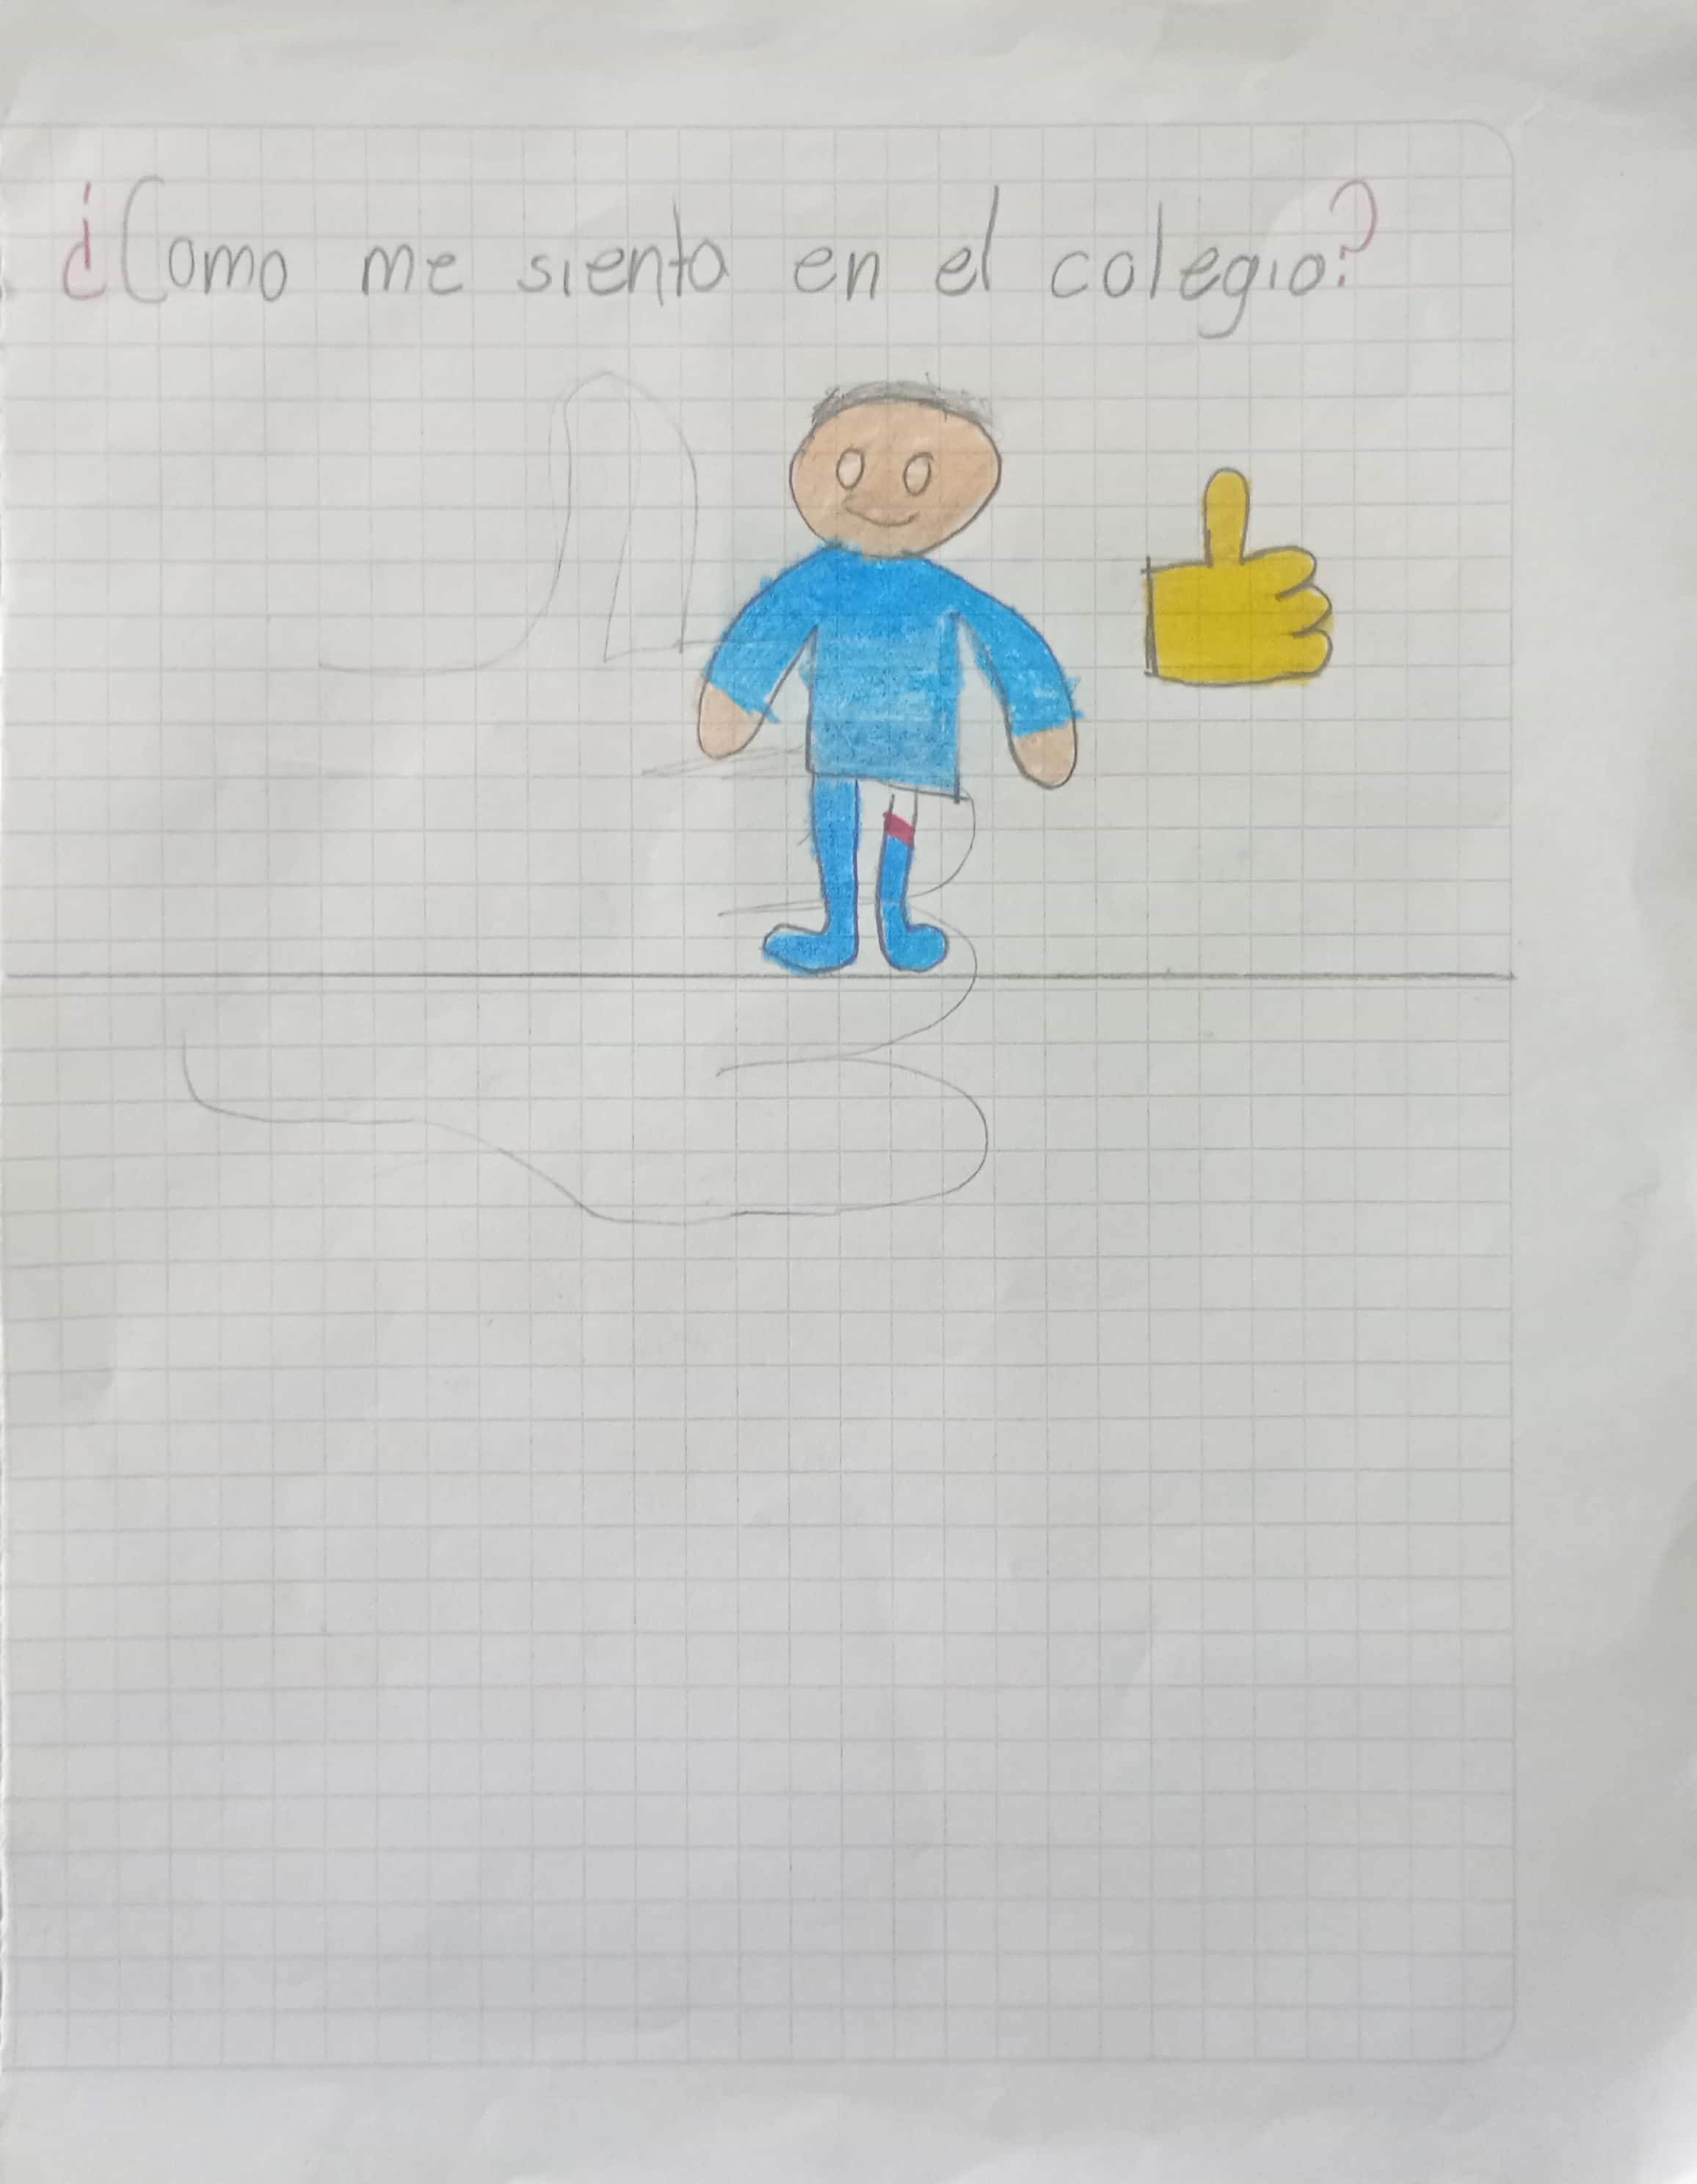 ¿Como me siento en el colegio?